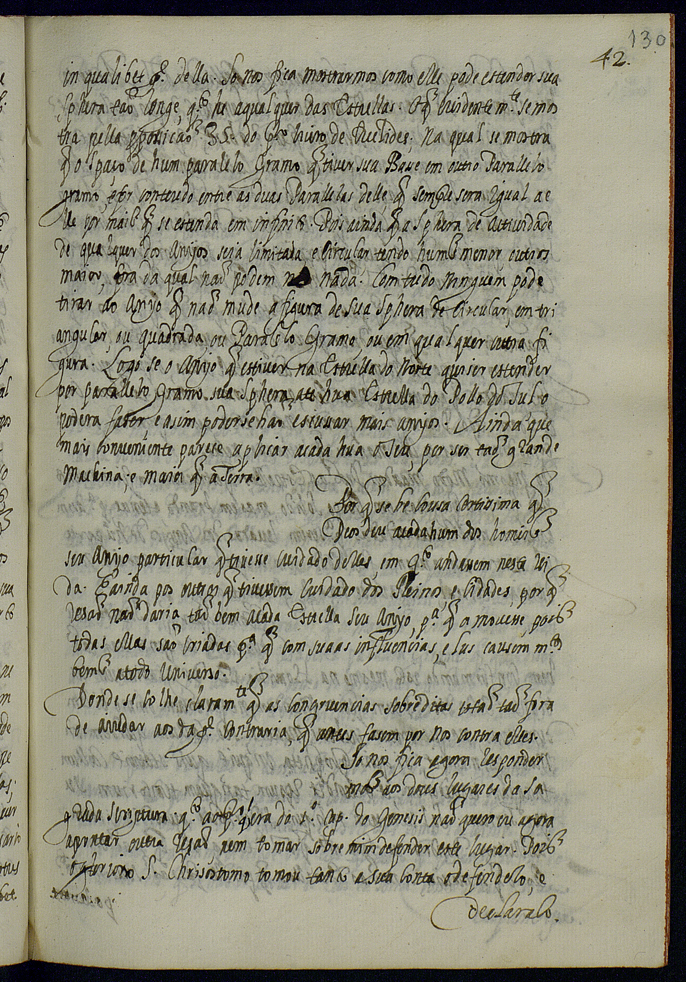 130
42.
in qualibet p.te della. So nos fica mostrarmos como elle pode estender sua
sphera tão longe, q.to ha a qualquer das Estrellas. O q̃ evidentem.te se mos
tra pella proposição 35. do p.ro livro de Euclides. Na qual se mostra
q̃ o spaço de hum parallelo Gramo q̃ tiver sua Base em outro Parallelo
gramo, e for contendo entre as duas Parallelas delle q̃ sempre sera igual a e
lle por mais q̃ se estenda em infinito. Pois ainda q̃ a sphera de Actividade
de qualquer dos Anjos seja limitada, e Circular tendo huns menor outros
maior, fora da qual não podem nada. Comtudo ninguem pode
tirar ao Anjo q̃ não mude a figura de sua sphera de Circular, em tri
angular, ou quadrada, ou Parallelo Gramo, ou em qualquer outra fi
gura. Logo se o Anjo q̃ estiver na Estrella do Norte quiser estender
por parallelo Gramo sua sphera, até hũa Estrella do Pollo do Sul o
podera fazer, e asim poderse hão escusar mais anjos. Ainda que
mais conveniente parece aplicar a cada hũa o seu, por ser tão grande
Machina; e maior q̃ a Terra.
Por q̃ se he cousa certissima q̃
Deos deu a cada hum dos homens
seu Anjo particular q̃ tivesse cuidado delles em q.to andassem nesta vi
da. E ainda pos outros q̃ tivessem cuidado dos Reinos, e Cidades, por q̃
resão não daria tão bem a cada Estrella seu Anjo, p.a q̃ a movesse, pois
todas ellas são criadas p.a q̃ com suas influencias, e lus causem m.tos
bens a todo Universo.
Donde se colhe claram.te q̃ as congruencias sobreditas estão tão fora
de ajudar aos da p.te Contraria, q̃ antes fasem por nos contra elles.
So nos fica agora responder
mos aos dous lugares da Sa
grada Scriptura; q.to ao p.ro q̃ era do p.o cap. do Genesis não quero eu agora
apontar outra resão nem tomar sobre mim defender este lugar. Pois
o glorioso S. Chrisostomo tomou tanto a sua conta o defendelo, e
declaralo.